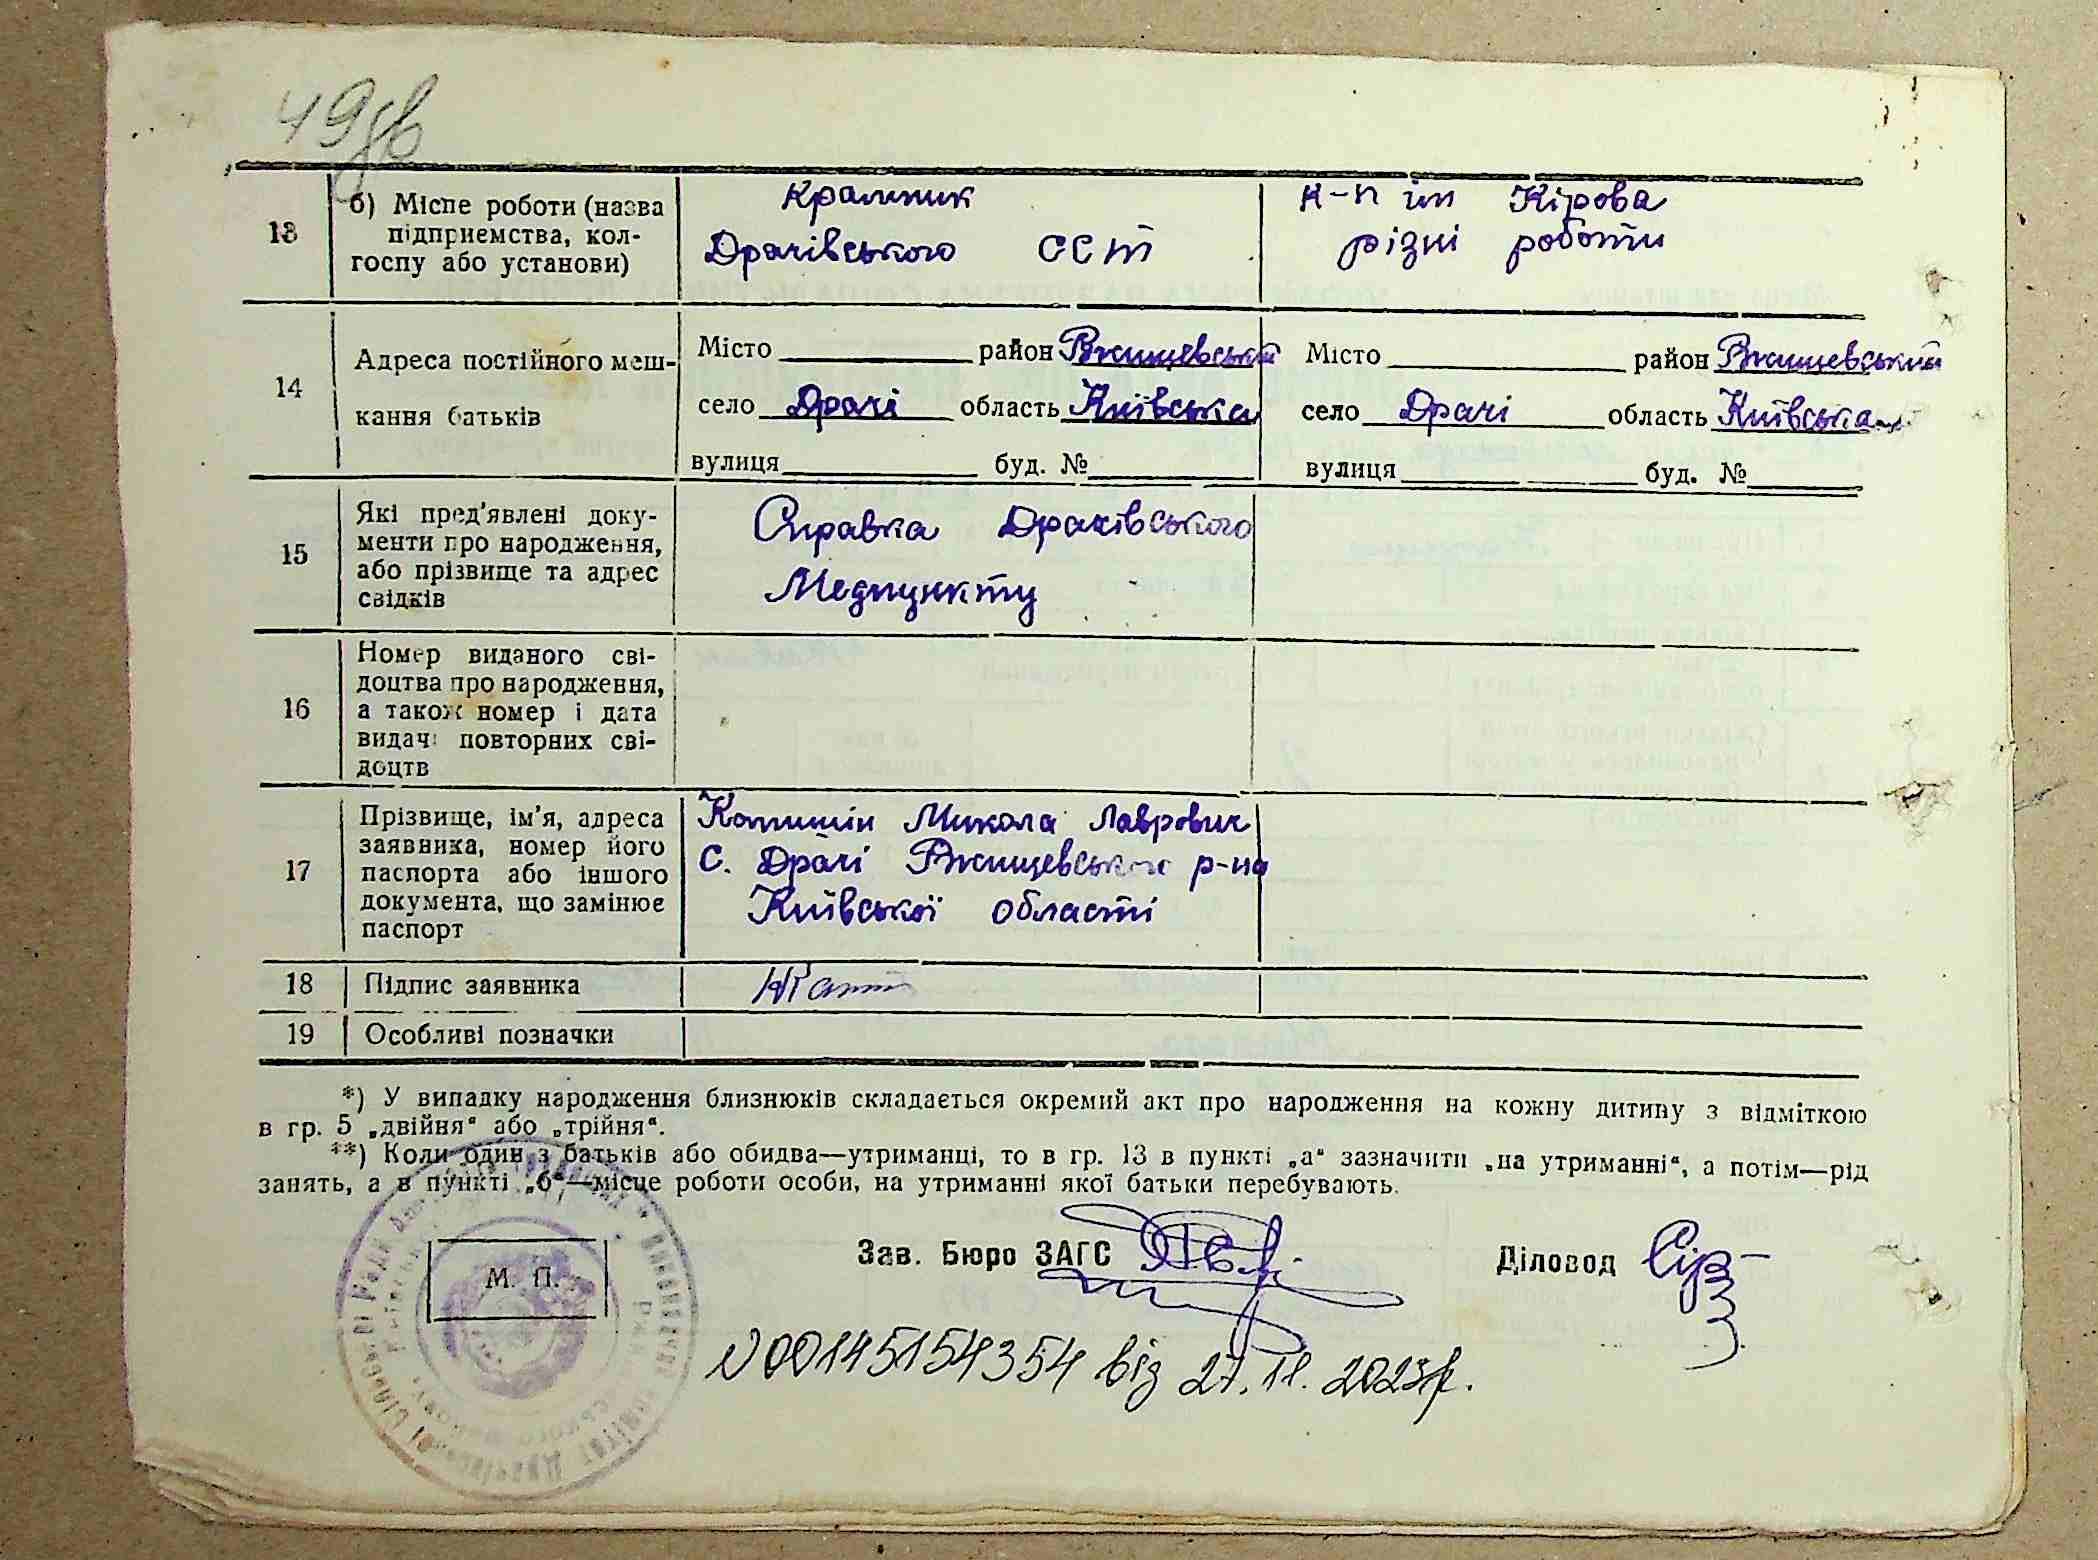 49 зв
13 б) Місце роботи (назва
підприємства, кол-
госпу або установи)
Крамник
Драчівського ССТ
к-п ім Кірова
різні роботи
14 Адреса постійного меш-
кання батьків
Місто район Ржищевський
село Драчі область Київська
вулиця буд. №
Місто район Ржищевський
село Драчі область Київська
вулиця буд. №
15 Які пред'явлені доку-
менти про народження,
або прізвище та адрес
свідків
Справка Драчівського
Медпункту
16 Номер виданого сві-
доцтва про народження,
а також номер і дата
видачі повторних сві-
доцтв
17 Прізвище, ім'я, адреса
заявника, номер його
паспорта або іншого
документа, що замінює
паспорт
Микола Лаврович
с. Драчі Ржищевського р-на
Київської області
18 Підпис заявника
19 Особливі позначки
*) У випадку народження близнюків складається окремий акт про народження на кожну дитину з відміткою
в гр. 5 „двійня“ або „трійня“.
**) Коли один з батьків або обидва—утриманці, то в гр. 13 в пункті „а“ зазначити „на утриманні“, а потім—рід
занять, а в пункті „б“—місце роботи особи, на утриманні якої батьки перебувають.
М. П.
Зав. Бюро ЗАГС
Діловод
N 00145154354 від 27.11.2023р.